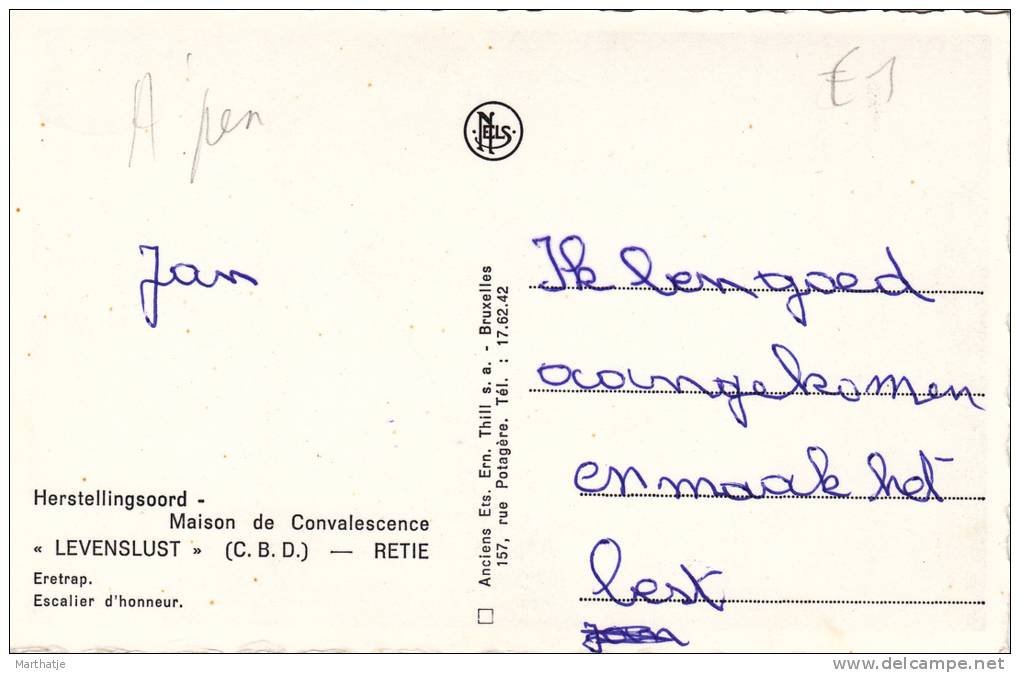 A'pen
€1
NELS
Jan
Ik ben goed
aangekomen
en maak het
best
Jan
Herstellingsoord -
Maison de Convalescence
« LEVENSLUST » (C.B.D.) — RETIE
Eretrap.
Escalier d'honneur.
Anciens Ets. Ern. Thill s. a. - Bruxelles
157, rue Potagère. Tél. : 17.62.42
Marthatje
www.delcampe.net